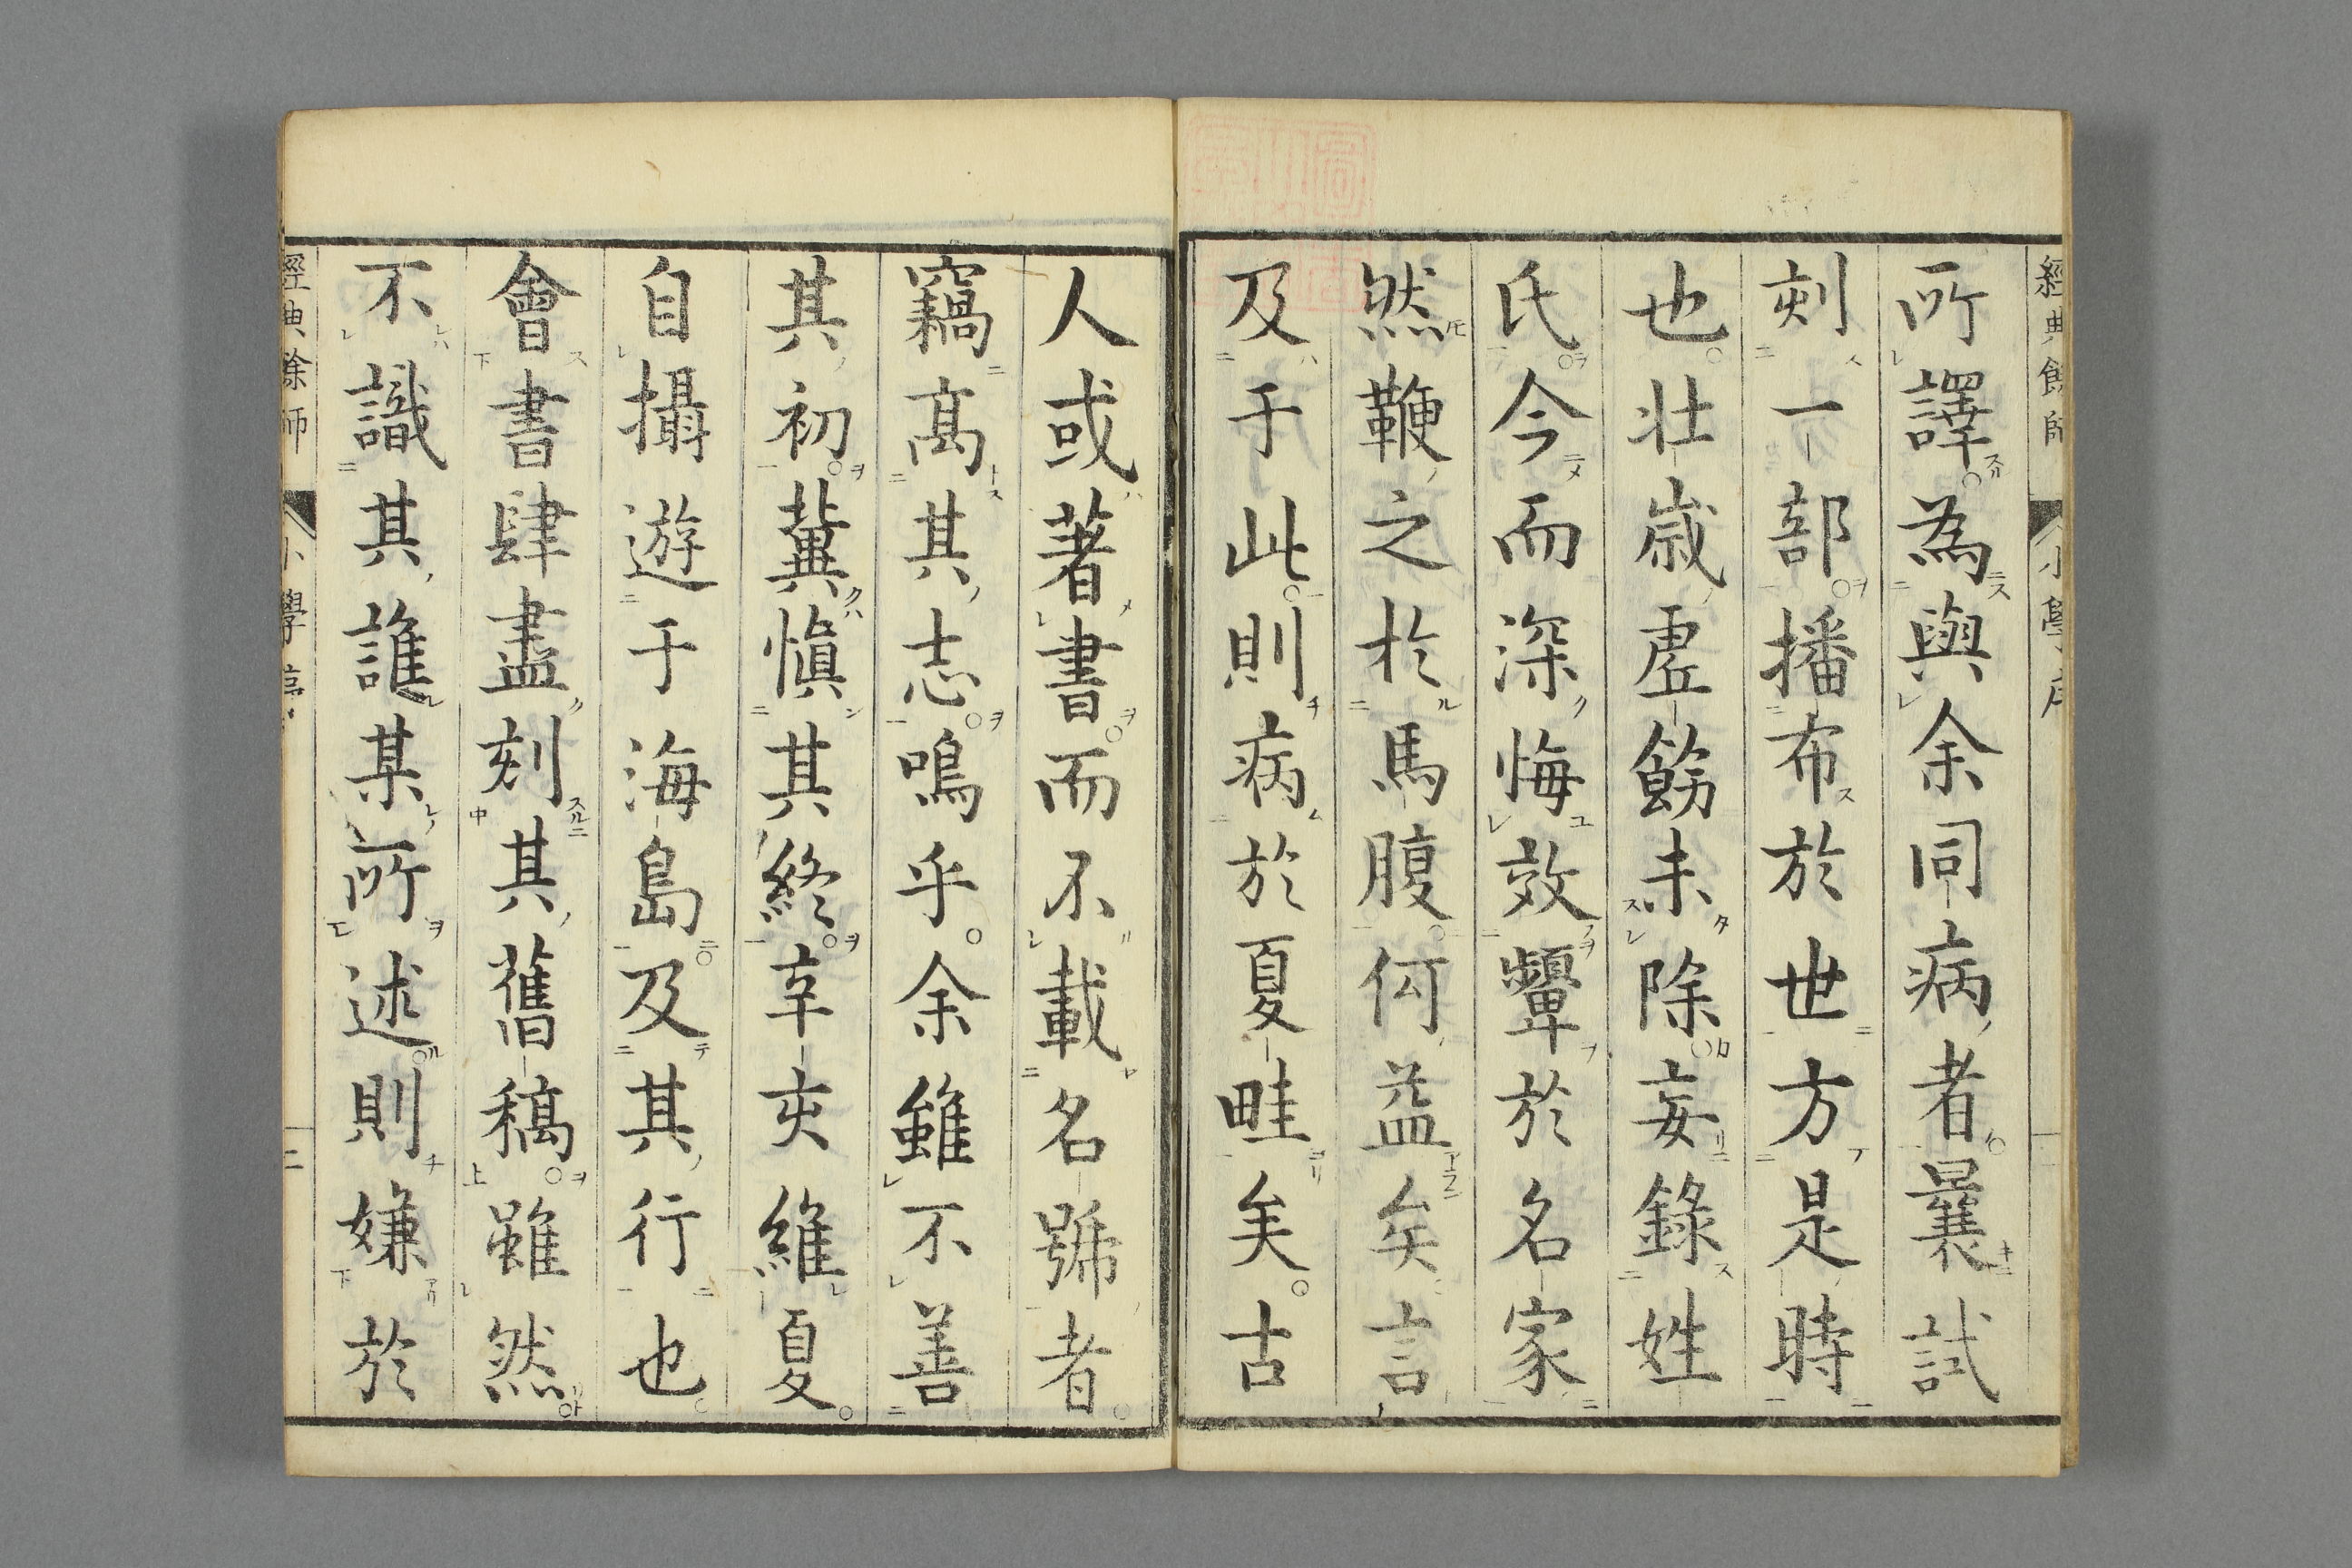 經典餘師 小學序
所譯為與余同病者曩試
刻一部播布於世方是時
也壮歳虛飾未除妄錄姓
氏今而深悔效顰於名家
然鞭之於馬腹何益矣言
及于此則病於夏畦矣古
人或著書而不載名號者
竊高其志嗚乎余雖不善
其初冀愼其終幸夹維夏
自攝遊于海島及其行也
會書肆盡刻其舊稿雖然
不識其誰某所述則嫌於
經典餘師 小學序 二